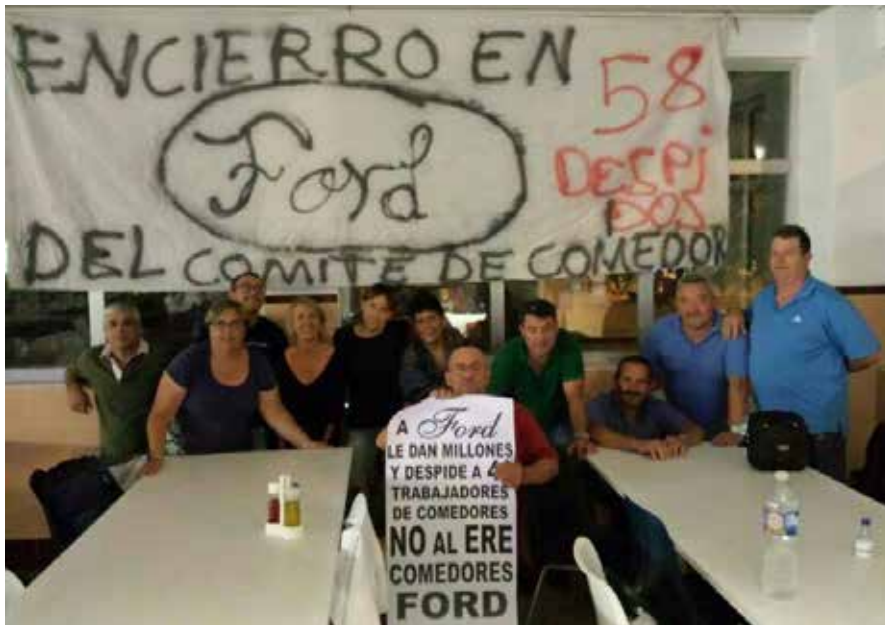 ENCIERRO EN
Ford
DEL COMITE DE COMEDOR
58
DESPI
DOS
A Ford
LE DAN MILLONES
Y DESPIDE A
TRABAJADORES
DE COMEDORES
NO AL ERE
COMEDORES
FORD